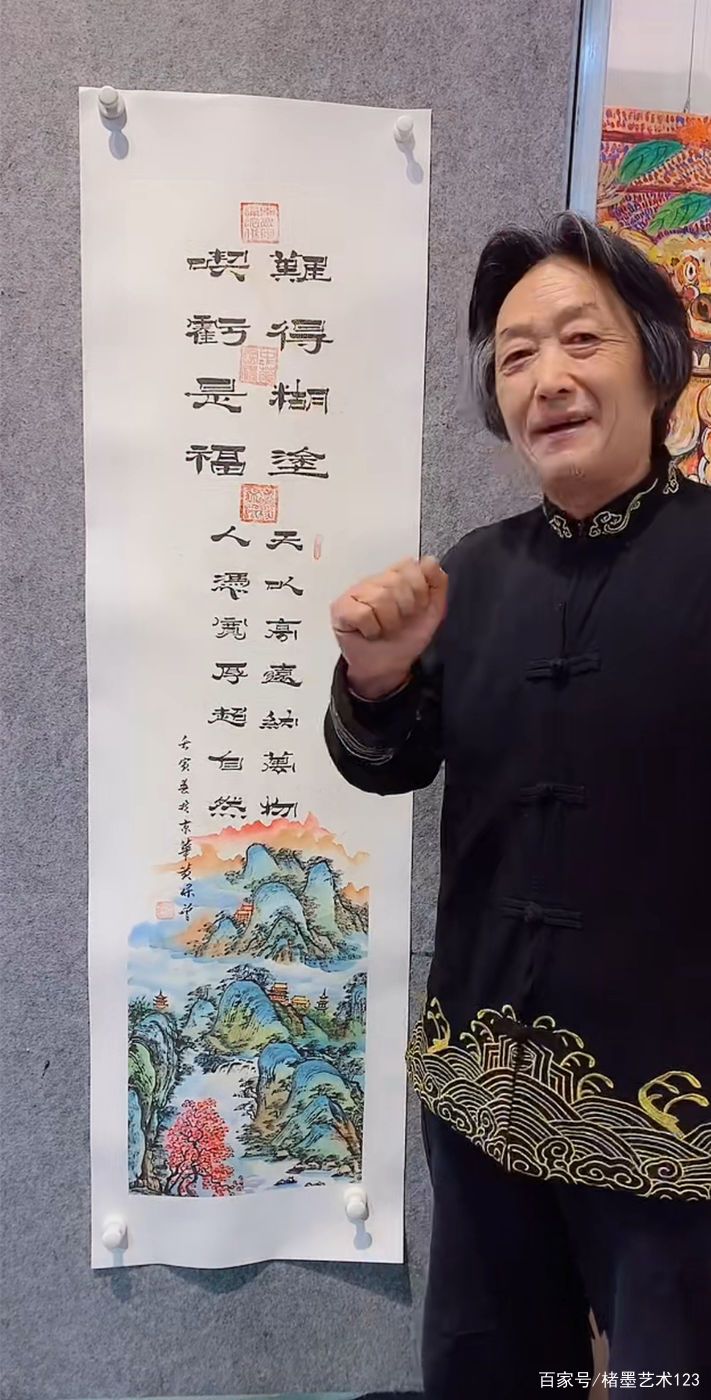 難得糊塗
喫虧是福
天以高遠納萬物
人憑寬厚超自然
壬寅姜於京華黃保曾
百家号/楮墨艺术123